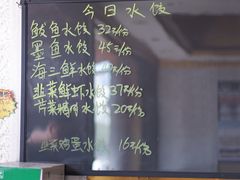 今日水饺
鲅鱼水饺 32元/份
墨鱼水饺 45元/份
海三鲜水饺 元/份
韭菜鲜虾水饺 37元/份
芹菜猪肉水饺 20元/份
韭菜鸡蛋水饺 16元/份